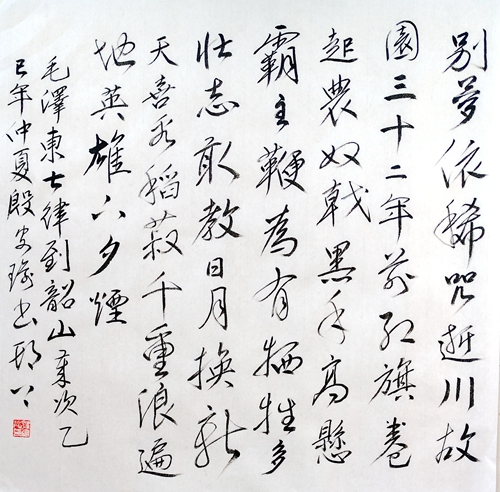 别夢依稀咒逝川故
園三十二年前红旗卷
起農奴戟黑手高懸
霸主鞭為有牺牲多
壮志敢教日月换新
天喜看稻菽千重浪遍
地英雄下夕煙
毛澤東七律到韶山歲次乙
巳年仲夏殷